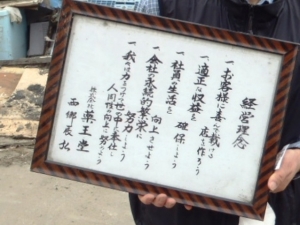 経営理念
一、お客様に喜ん戴ける
店を作ろう
一、適正な収益を
確保しよう
一、社員の生活を
向上させよう
一、会社の永続的繁栄に
努力しよう
一、我々の力で世の中に奉仕し
人間性の向上に努めよう
株式会社 薬王堂
西郷辰弘